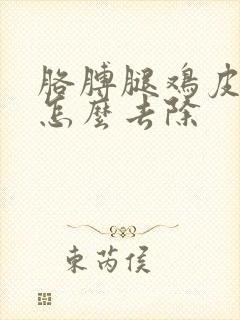 胳膊腿鸡皮
怎麼去除
東芮侯